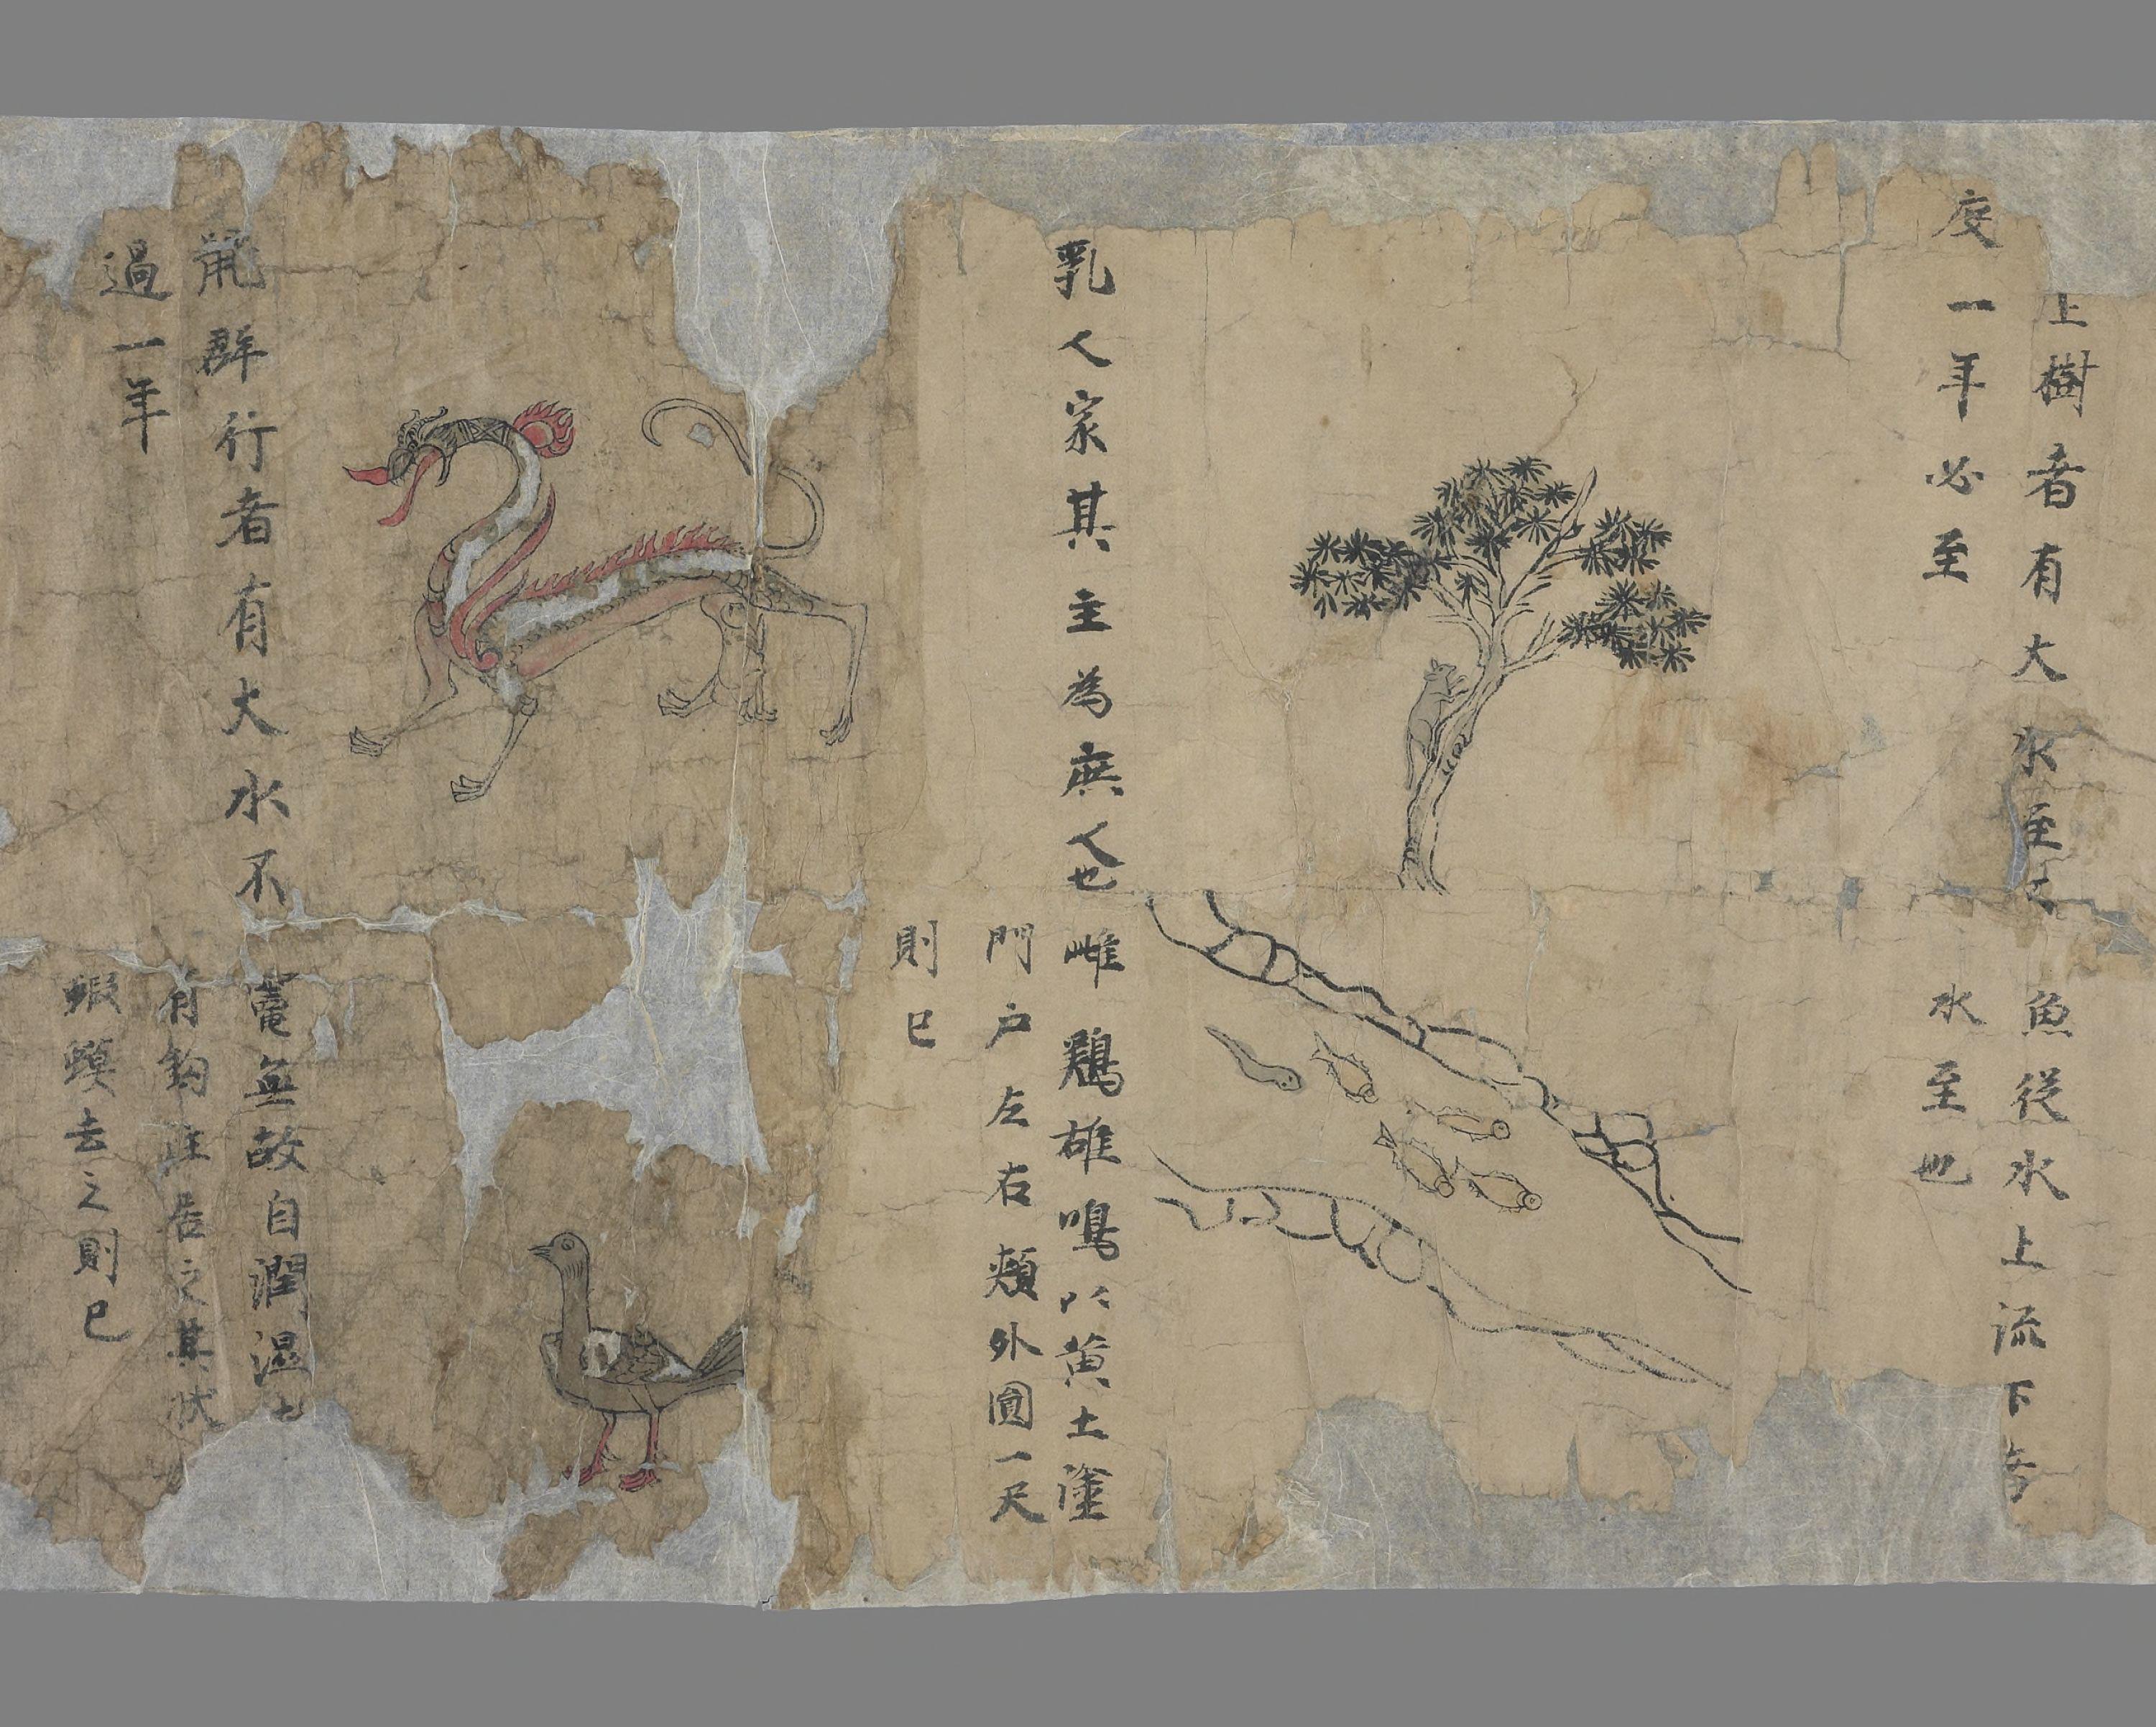 上樹者有大水至之
度一年必至
魚從水上流下者
水至也
乳人家其主為庶人也
雌鷄雄鳴以黃土塗
門戶左右頰外圓一尺
則已
鼠群行者有大水不
過一年
竈無故自潤濕
有鈎注居之其狀
蝦蟆去之則已